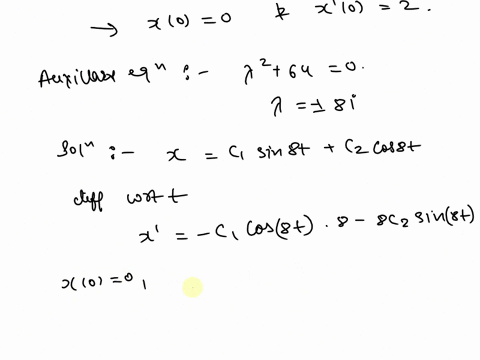 → x(0) = 0 & x'(0) = 2.
Auxillare eqⁿ :- λ² + 64 = 0.
λ = ± 8i
Solⁿ :- x = C₁ sin 8t + C₂ cos 8t
diff wrt t
x' = -C₁ cos(8t) . 8 - 8C₂ sin(8t)
x(0) = 0,